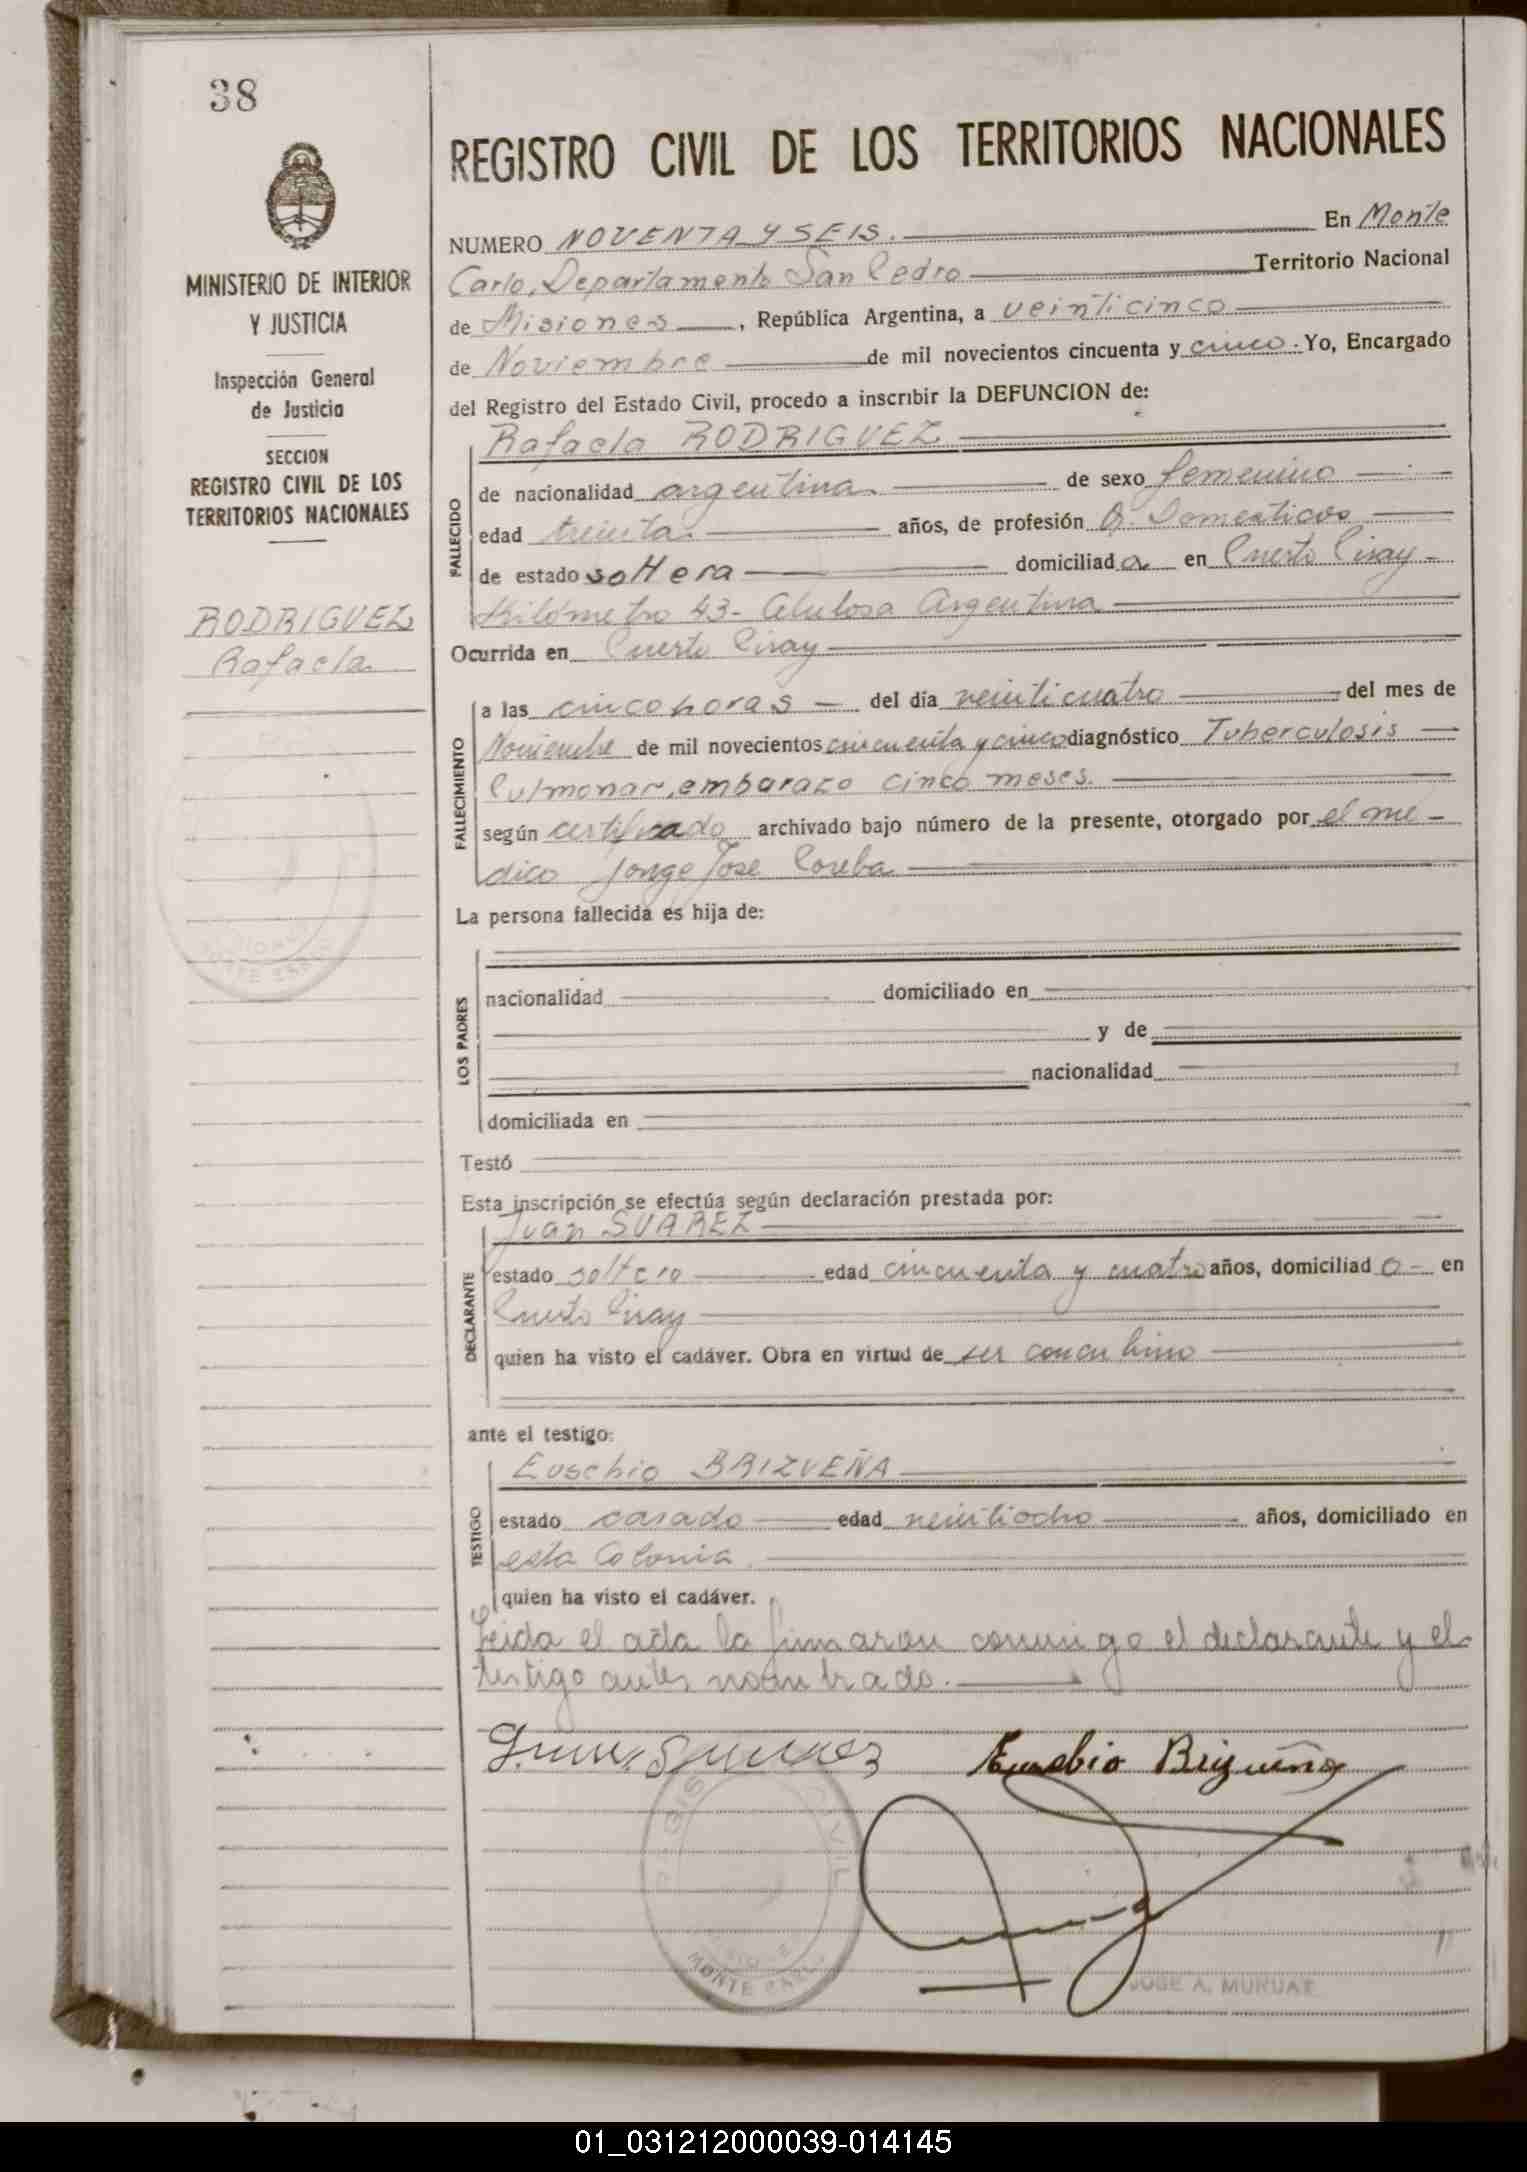 38
REGISTRO CIVIL DE LOS TERRITORIOS NACIONALES
MINISTERIO DE INTERIOR
Y JUSTICIA
Inspección General
de Justicia
SECCION
REGISTRO CIVIL DE LOS
TERRITORIOS NACIONALES
RODRIGUEZ
Rafaela
NUMERO NOVENTA Y SEIS. En Monte
Carlo, Departamento San Pedro Territorio Nacional
de Misiones, República Argentina, a veinticinco
de Noviembre de mil novecientos cincuenta y cinco. Yo, Encargado
del Registro del Estado Civil, procedo a inscribir la DEFUNCION de:
Rafaela RODRIGUEZ
FALLECIDO
de nacionalidad argentina de sexo femenino
edad treinta años, de profesión Q. Domesticos
de estado soltera domiciliad a en Puerto Piray
Kilómetro 43- Celulosa Argentina
Ocurrida en Puerto Piray
FALLECIMIENTO
a las cinco horas del día veinticuatro del mes de
Noviembre de mil novecientos cincuenta y cinco diagnóstico Tuberculosis
Pulmonar, embarazo cinco meses.
según certificado archivado bajo número de la presente, otorgado por el mé-
dico Jorge José
La persona fallecida es hija de:
LOS PADRES
nacionalidad domiciliado en
y de
nacionalidad
domiciliada en
Testó
Esta inscripción se efectúa según declaración prestada por:
Juan SUAREZ
DECLARANTE
estado soltero edad cincuenta y cuatro años, domiciliad o en
Puerto Piray
quien ha visto el cadáver. Obra en virtud de ser concubino
ante el testigo:
Eusebio BRIZUEÑA
TESTIGO
estado casado edad veintiocho años, domiciliado en
esta Colonia
quien ha visto el cadáver.
Leida el acta la firmaron conmigo el declarante y el
testigo antes nombrado.
Eusebio Brizueña
REGISTRO CIVIL
MONTE CARLO
JOSE A. MURUAT
01_031212000039-014145